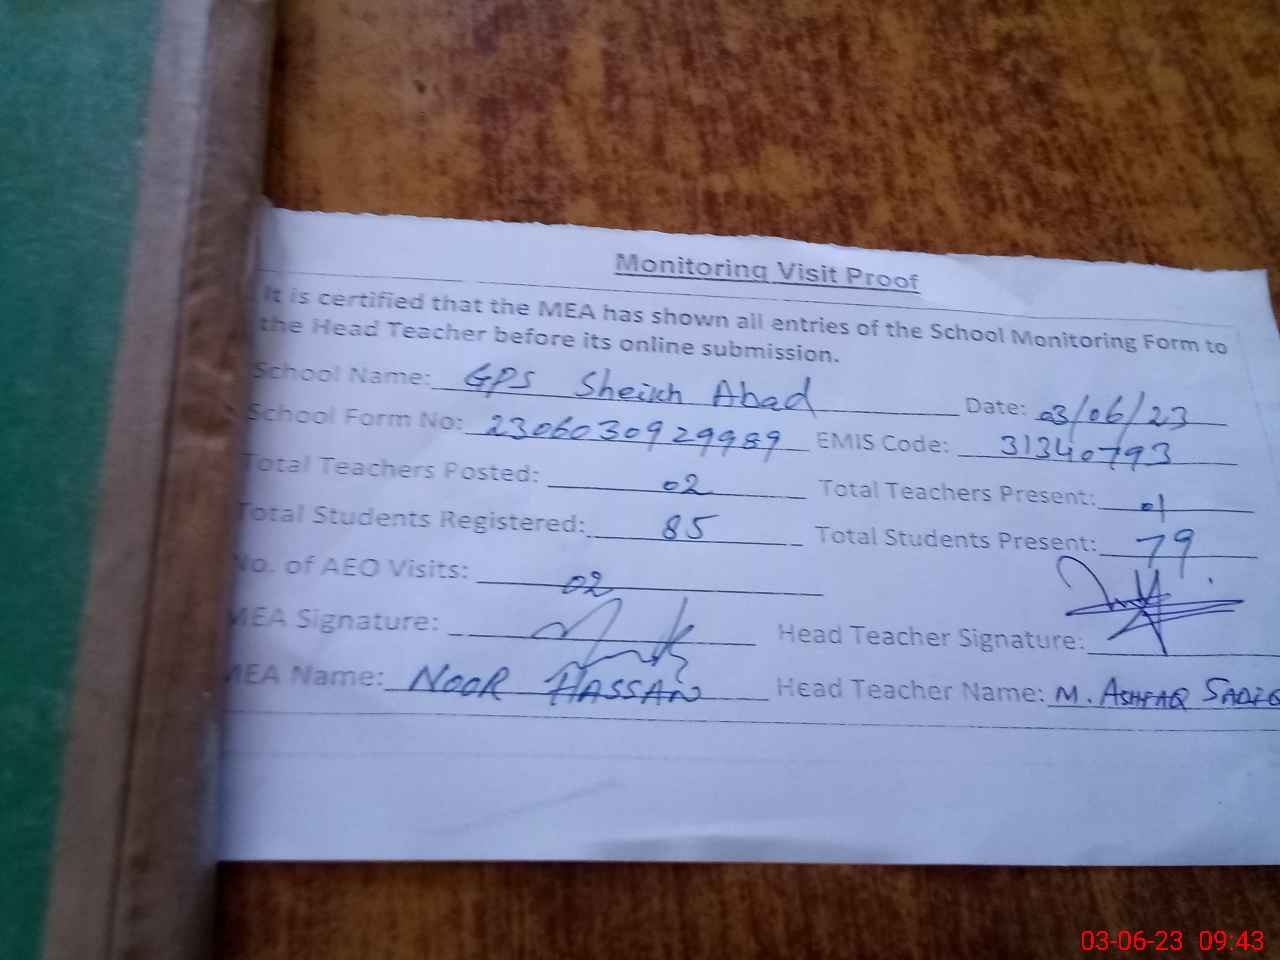 Monitoring Visit Proof
It is certified that the MEA has shown all entries of the School Monitoring Form to
the Head Teacher before its online submission.
School Name: GPS Sheikh Abad Date: 03/06/23
School Form No: 2306030929989 EMIS Code: 31340793
Total Teachers Posted: 02 Total Teachers Present: 01
Total Students Registered: 85 Total Students Present: 79
No. of AEO Visits: 02
MEA Signature: Head Teacher Signature:
MEA Name: NOOR HASSAN Head Teacher Name: M. ASHFAQ SADIQ
03-06-23 09:43